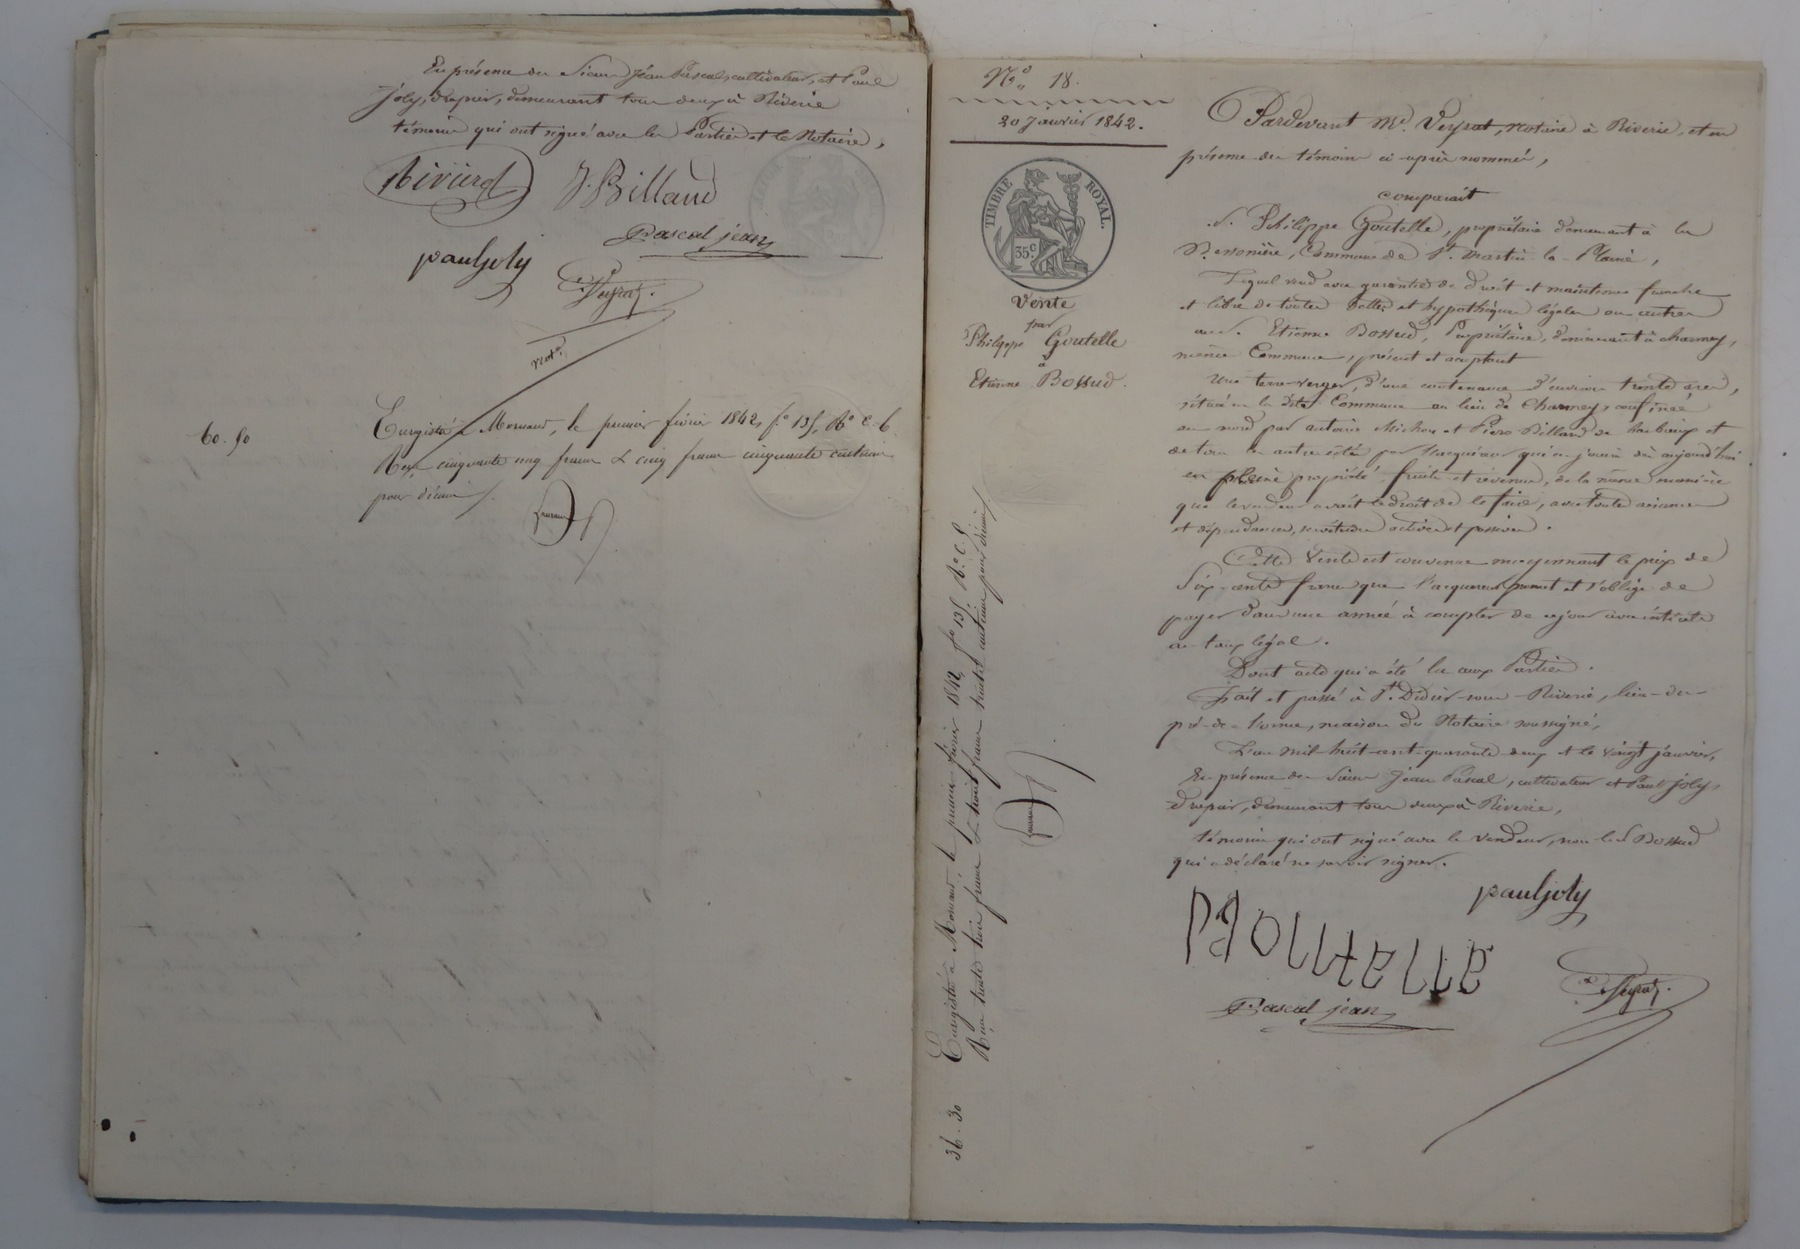 En présence des Sieurs Jean Pascal, cultivateur, et Paul
Joly, drapier, demeurant tous deux à Riverie
témoins qui ont signé avec les Parties et le Notaire,
J. Billand
pauljoly
Pascal jean
Veyrat
not.e
60. 50
Enregistré à Mornant, le premier février 1842, f.o 135, R.o C. 6.
Reçu cinquante cinq francs & cinq francs cinquante centimes
pour décime
N.o 18.
20 Janvier 1842.
TIMBRE ROYAL
35.c
Vente
par
Philippe Goutelle
à
Etienne Bossud.
Enregistré à Mornant, le premier février 1842, f.o 135, R.o C. 5
Reçu trente trois francs & trois francs trente centimes pour décime
36. 30
Pardevant M.e Veyrat, notaire à Riverie, et en
présence des témoins ci-après nommés,
comparait
S. Philippe Goutelle, propriétaire demeurant à la
Commune de S.t Martin-la-Plaine,
Lequel vend avec garantie de droit et maintenue franche
et libre de toutes dettes et hypothèques légales ou autres
au S. Etienne Bossud, Propriétaire, demeurant à Charmey,
même Commune, présent et acceptant
Une terre-verger, d'une contenance d'environ trente ares,
située en la dite Commune au lieu de Charmey, confinée
au nord par antoine Michon et Pierre Billard de et
de tous autres côtés par l'acquéreur qui en jouira dès aujourd'hui
en pleine propriété fruits et revenus, de la même manière
que le vendeur avait le droit de le faire, avec toutes aisances
et dépendances, servitudes actives et passives.
Cette Vente est convenue moyennant le prix de
Six-cents francs que l'acquéreur promet et s'oblige de
payer dans une année à compter de ce jour avec intérêts
au taux légal.
Dont acte qui a été lu aux Parties.
Fait et passé à S.t Didier-sous-Riverie, lieu-du-
pré-de-l'orme, maison du Notaire soussigné,
L'an mil-huit-cent-quarante-deux et le vingt janvier,
En présence des Sieurs Jean Pascal, cultivateur et Paul Joly,
drapier, demeurant tous deux à Riverie,
témoins qui ont signé avec le vendeur, non le S. Bossud
qui a déclaré ne savoir signer.
pauljoly
Pascal jean
Veyrat